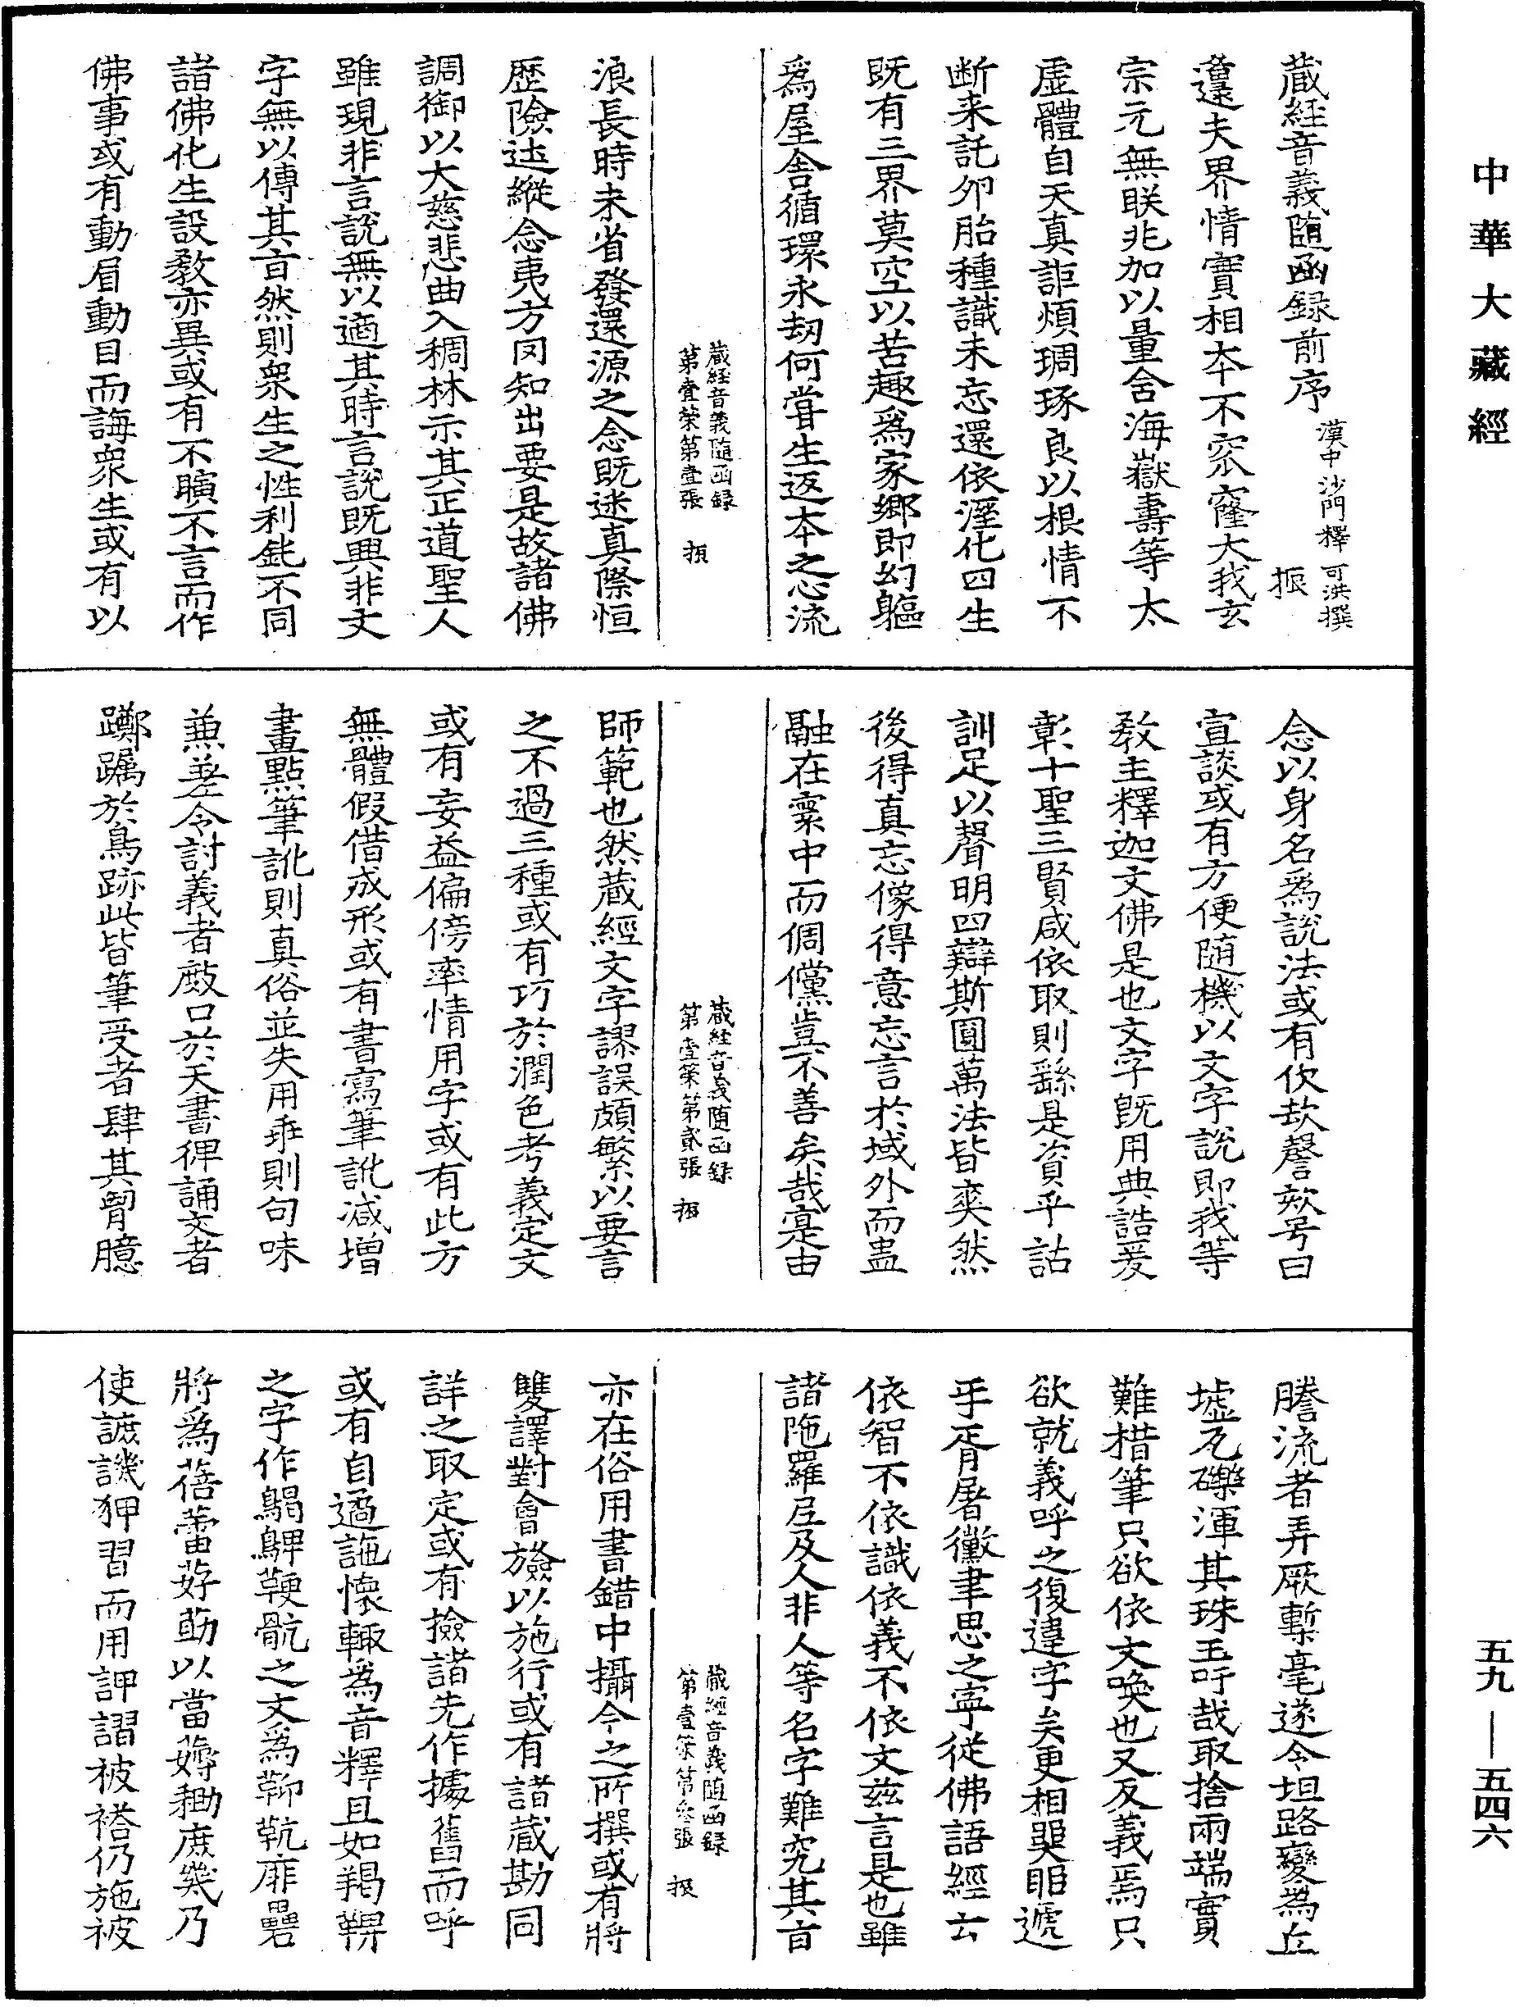 中華大藏經
藏経音義随函録前序 漢中沙門釋可洪撰 振
夫界情實相本不窊窿大我玄
宗元無联兆加以量含海嶽壽等太
虚體自天真詎煩琱琢良以根情不
断来託夘胎種識未忘還依溼化四生
既有三界莫空以苦趣為家郷即幻軀
為屋舎循環永刧何甞生返本之心流
藏経音義随函録
第壹第壹張 振
浪長時未省發還源之念既迷真際恒
歴險途縱念夷方罔知出要是故諸佛
調御以大慈悲曲入稠林示其正道聖人
雖現非言說無以適其時言說既興非文
字無以傳其言然則衆生之性利鈍不同
諸佛化生設教亦異或有不瞚不言而作
佛事或有動眉動目而誨衆生或有以
念以身名為說法或有佽欬謦欬号曰
宣談或有方便随機以文字說即我等
教主釋迦文佛是也文字既用典誥爰
彰十聖三賢咸依取則繇是資乎詁
訓足以聲明四辯斯圓萬法皆奕然
後得真忘像得意忘言於域外而盡
融在寰中而倜儻豈不善矣哉寔由
藏経音義随函録
第壹第貳張 振
師範也然藏經文字謬誤頗繁以要言
之不過三種或有巧於潤色考義定文
或有妄益偏傍率情用字或有此方
無體假借成形或有書寫筆訛減增
畫點筆訛則真俗並失用乖則句味
兼差令討義者㪇口於天書俾誦文者
躑躅於鳥跡此皆筆受者肆其胷臆
謄流者弄厥槧毫遂令坦路變為丘
墟瓦礫渾其珠玉吁哉取捨兩端實
難措筆只欲依文喚也又反義焉只
欲就義呼之復違字矣更相䀹眼遞
手胥屠黴聿思之寧從佛語經云
依智不依識依義不依文兹言是也雖
諸陁羅尼及人非人等名字難究其言
藏經音義随函録
第壹第叁張 振
亦在俗用書錯中攝今之所撰或有將
雙譯對會險以施行或有諸藏勘同
詳之取定或有撿諸先作據舊而呼
或有自過訑懷輙為音釋且如羯鞞
之字作鞨鞞鞕骯之文為鞹䡉庳礨
將為蓓蕾葧䓛以當䕪耡庶幾乃
使謶譏狎習而用䛅謵被褡仍施被
五九—五四六